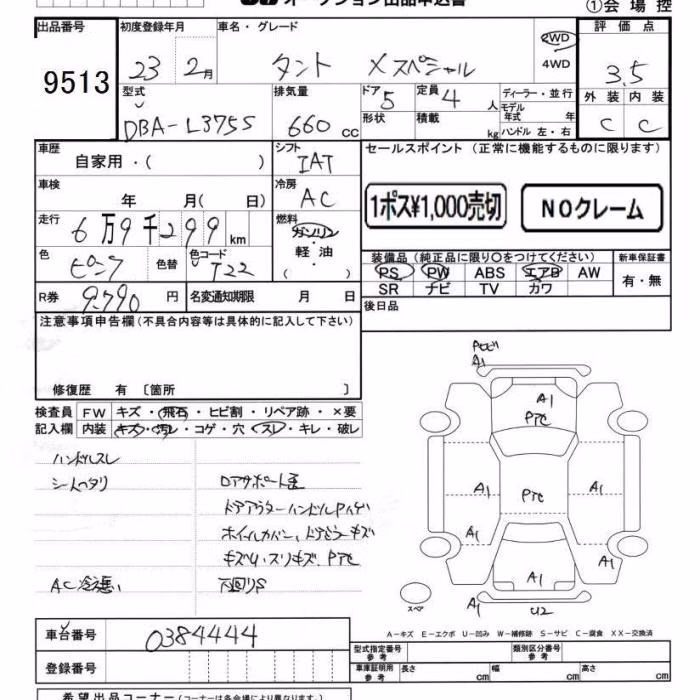 オークション出品申込書
①会場控
出品番号 初度登録年月 車名・グレード 評価点
9513 23 2月 タント Xスペシャル 2WD 4WD 3.5
型式 排気量 ドア 定員 ディーラー・並行 外装 内装
DBA-L375S 660cc 5 4人 モデル年式 年 C C
形状 積載 kg ハンドル 左・右
車歴 シフト セールスポイント(正常に機能するものに限ります)
自家用・( ) IAT
車検 冷房
年 月( 日) AC 1ポス¥1,000売切 NOクレーム
走行 燃料
6万9千299km ガソリン
軽油
( )
色 色替 色コード 装備品(純正品に限り〇をつけてください) 新車保証書
ピンク T22 PS PW ABS エアB AW 有・無
SR ナビ TV カワ
R券 9,790円 名変通知期限 月 日 後日品
注意事項申告欄(不具合内容等は具体的に記入して下さい)
修復歴 有 〔箇所 〕
検査員 FW キズ・飛石・ヒビ割・リペア跡・×要
記入欄 内装 キズ・汚レ・コゲ・穴・スレ・キレ・破レ
ハンドルスレ
シートヘタリ ドアサポート歪
ドアアウターハンドルPハゲ
ホイールカバー、ドアミラーキズ
キズU・スリキズ、Pタレ
AC冷悪い 下回りS
Pトビ
A1
A1
Pタレ
A1 Pタレ A1
A1 A1
A1
スペア U2
A-キズ E-エクボ U-凹み W-補修跡 S-サビ C-腐食 XX-交換済
車台番号 0384444 型式指定番号 参考 類別区分番号 参考
登録番号 車庫証明用 参考 長さ cm 幅 cm 高さ cm
希望出品コーナー(コーナーは各会場により異なります)